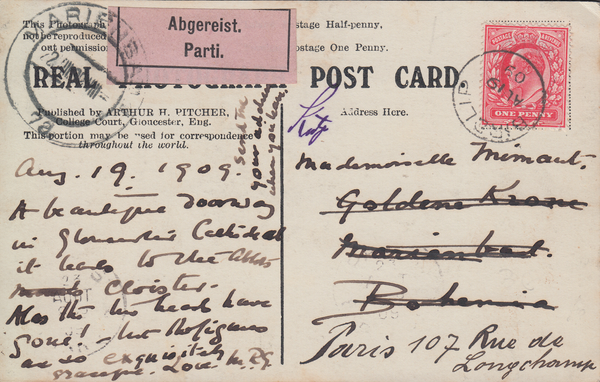 Abgereist.
Parti.
This Photograph
not be reproduced
out permission
stage Half-penny.
Postage One Penny.
REAL PHOTOGRAPH POST CARD
Published by ARTHUR H. PITCHER,
College Court, Gloucester, Eng.
This portion may be used for correspondence
throughout the world.
Address Here.
ONE PENNY
BIRDLIP
AU 19
09
Aug. 19. 1909.
A beautiful doorway
in Gloucester Cathedral
it leads to the Abbots
Cloister.
Alas the two heads have
gone! - but the figures
are so exquisitely
graceful. Love M.
Send me
your address
when you
Mademoiselle Mimaut.
Goldene Krone
Marienbad.
Bohemia
Paris 107 Rue de
Longchamp